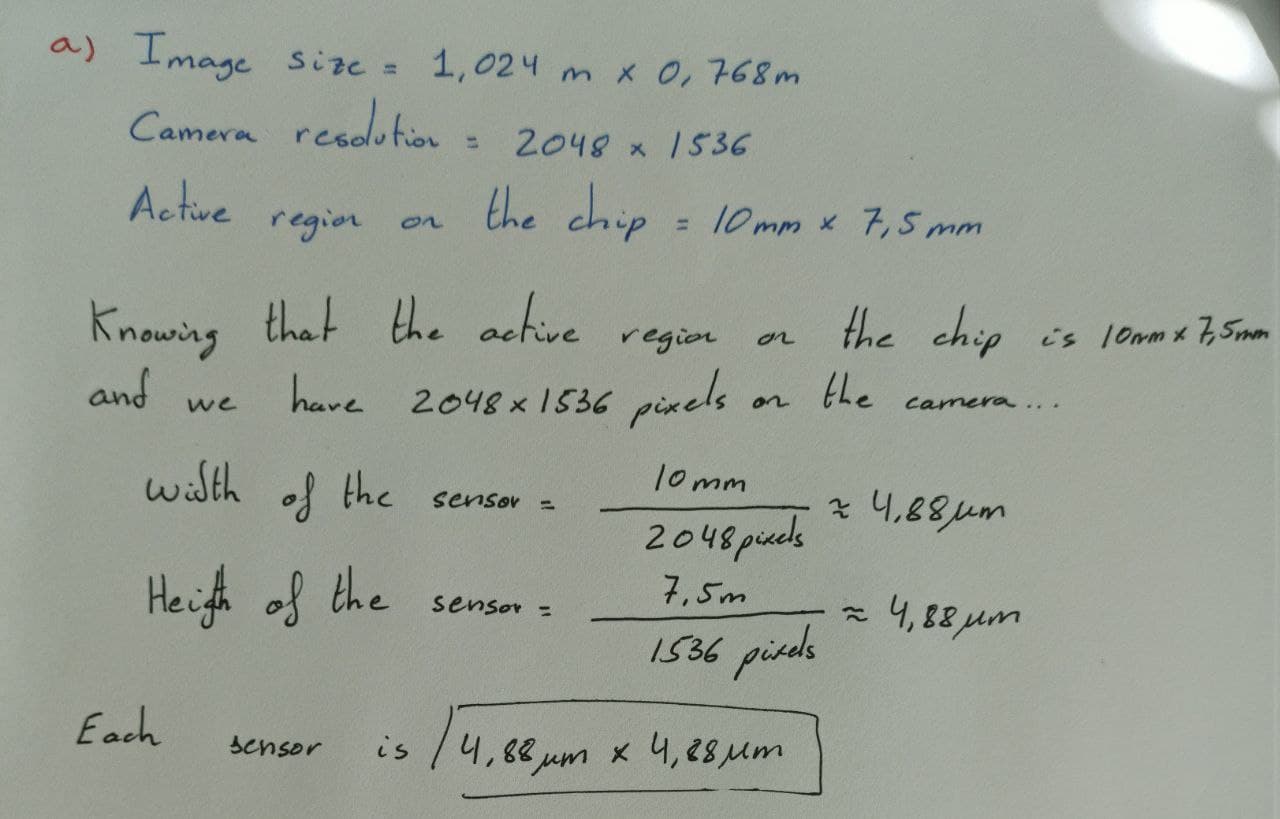 a) Image size = 1,024 m x 0,768m
Camera resolution = 2048 x 1536
Active region on the chip = 10mm x 7,5 mm
Knowing that the active region on the chip is 10mm x 7,5mm
and we have 2048 x 1536 pixels on the camera...
width of the sensor = 10 mm / 2048 pixels ≈ 4,88 µm
Heigth of the sensor = 7,5m / 1536 pixels ≈ 4,88 µm
Each sensor is 4,88 µm x 4,88 µm